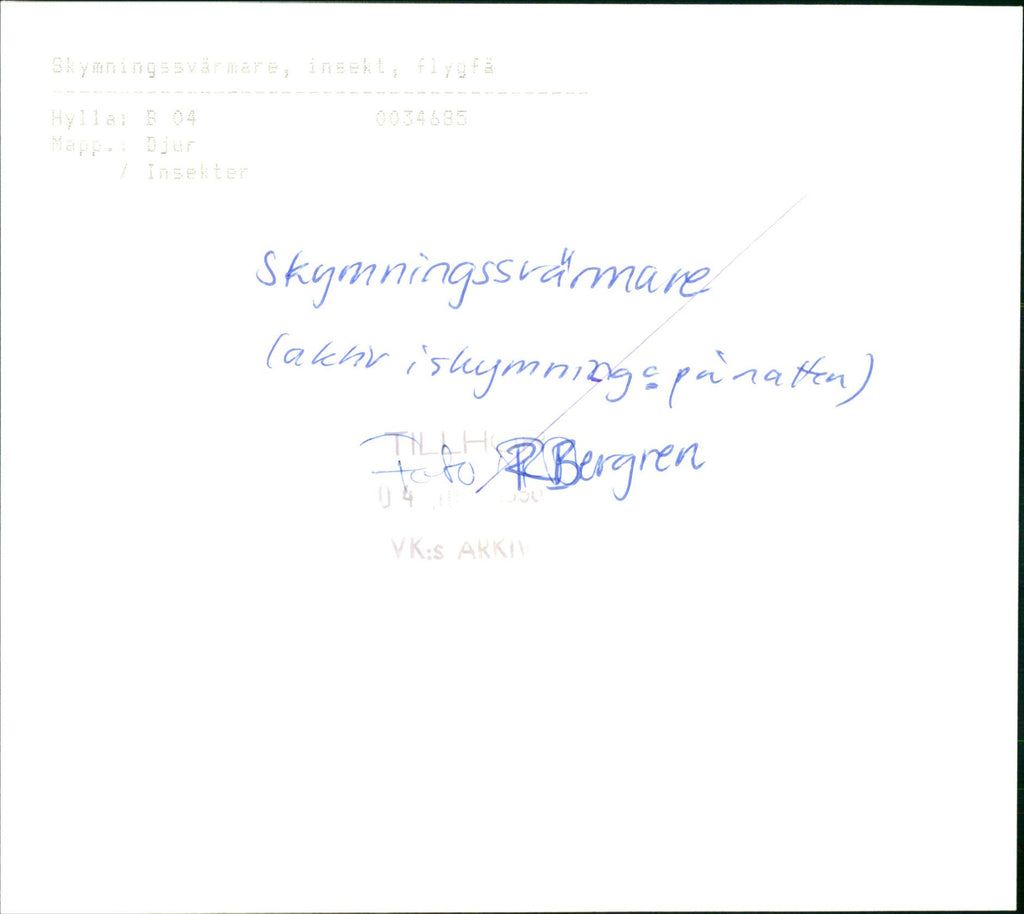 Skymningssvärmare, insekt, flygfä
----------------------------------------
Hylla: B 04 0034685
Mapp.: Djur
/ Insekter
Skymningssvärmare
(aktiv i skymning på natten)
TILLH
Foto R Bergren
04
VK:s ARKIV